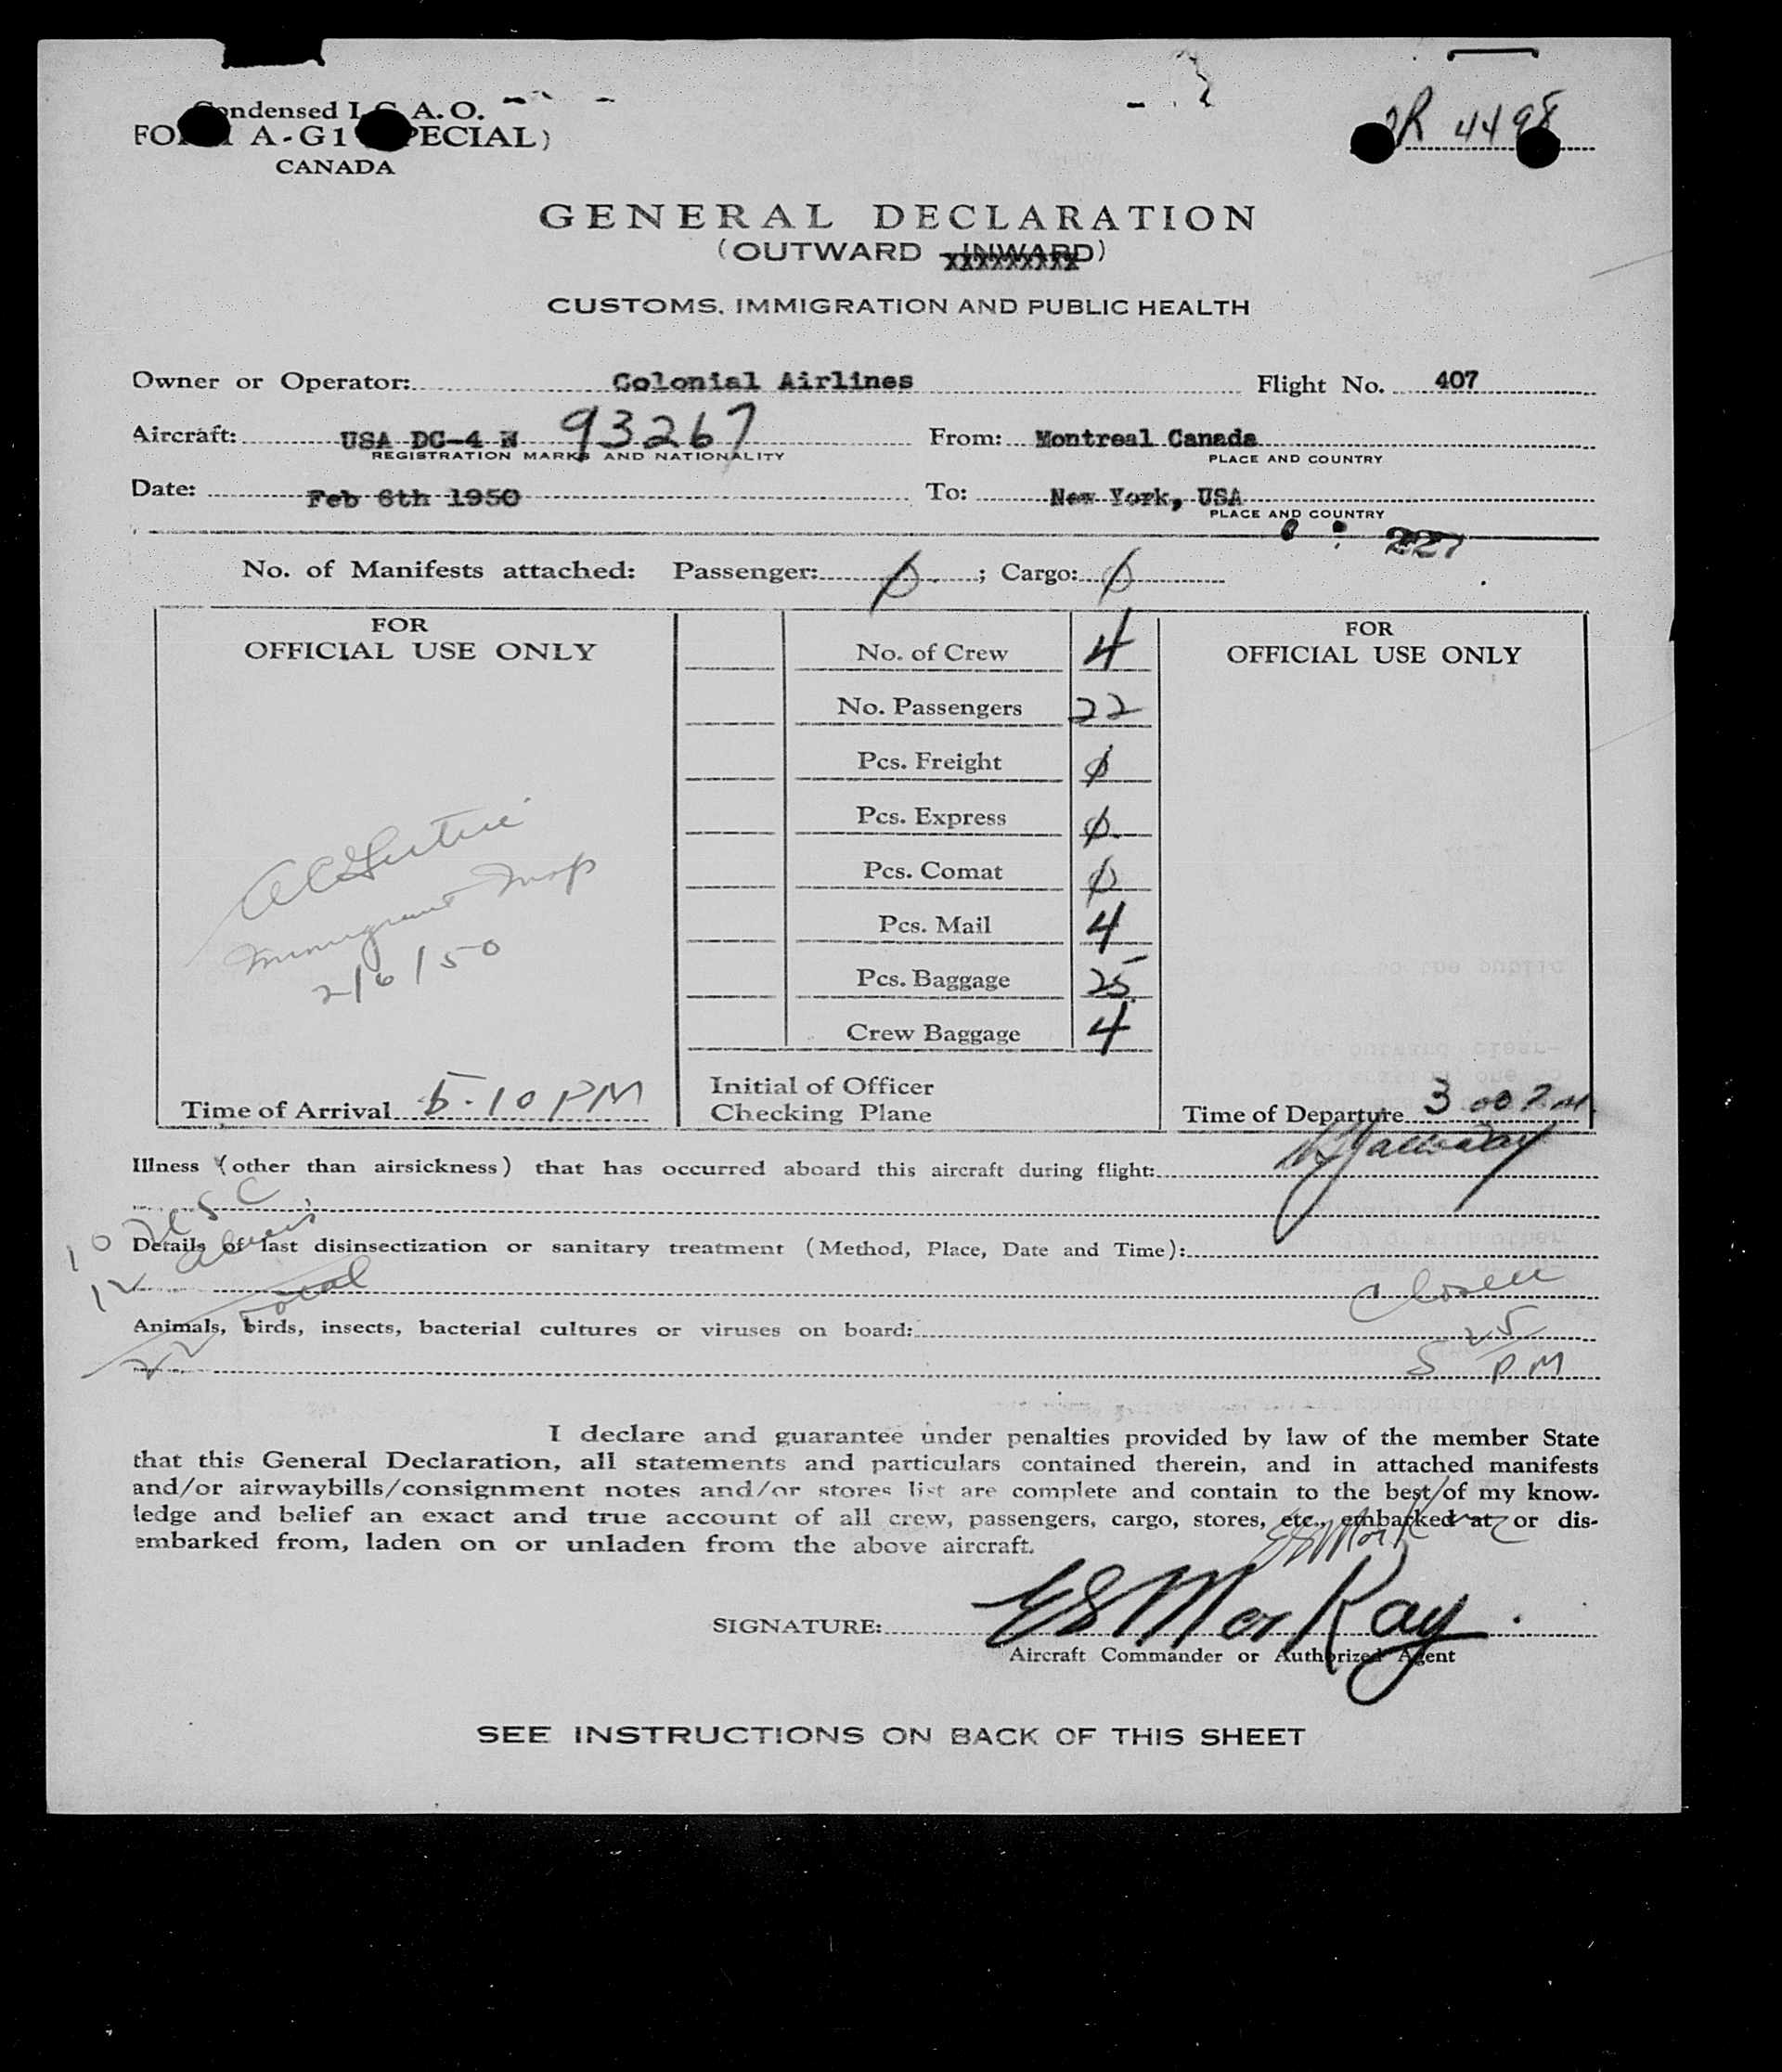 Condensed I.C.A.O.
FORM A-G1 (SPECIAL)
CANADA
R 4498
GENERAL DECLARATION
(OUTWARD INWARD)
CUSTOMS, IMMIGRATION AND PUBLIC HEALTH
Owner or Operator: Colonial Airlines Flight No. 407
Aircraft: USA DC-4 N 93267 From: Montreal Canada
REGISTRATION MARKS AND NATIONALITY PLACE AND COUNTRY
Date: Feb 6th 1950 To: New York, USA
PLACE AND COUNTRY
227
No. of Manifests attached: Passenger: 0 ; Cargo: 0
FOR
OFFICIAL USE ONLY
Immigrant Insp
2/6/50
Time of Arrival 5-10 PM
No. of Crew 4
No. Passengers 22
Pcs. Freight 0
Pcs. Express 0
Pcs. Comat 0
Pcs. Mail 4
Pcs. Baggage 25
Crew Baggage 4
Initial of Officer
Checking Plane
FOR
OFFICIAL USE ONLY
Time of Departure 3 00 PM
Illness (other than airsickness) that has occurred aboard this aircraft during flight:
10 USC
Details of last disinsectization or sanitary treatment (Method, Place, Date and Time):
12 aliens
22 total
Closed
Animals, birds, insects, bacterial cultures or viruses on board:
5 25 PM
I declare and guarantee under penalties provided by law of the member State
that this General Declaration, all statements and particulars contained therein, and in attached manifests
and/or airwaybills/consignment notes and/or stores list are complete and contain to the best of my know-
ledge and belief an exact and true account of all crew, passengers, cargo, stores, etc., embarked at, or dis-
embarked from, laden on or unladen from the above aircraft.
SIGNATURE: ES MorKay
Aircraft Commander or Authorized Agent
SEE INSTRUCTIONS ON BACK OF THIS SHEET